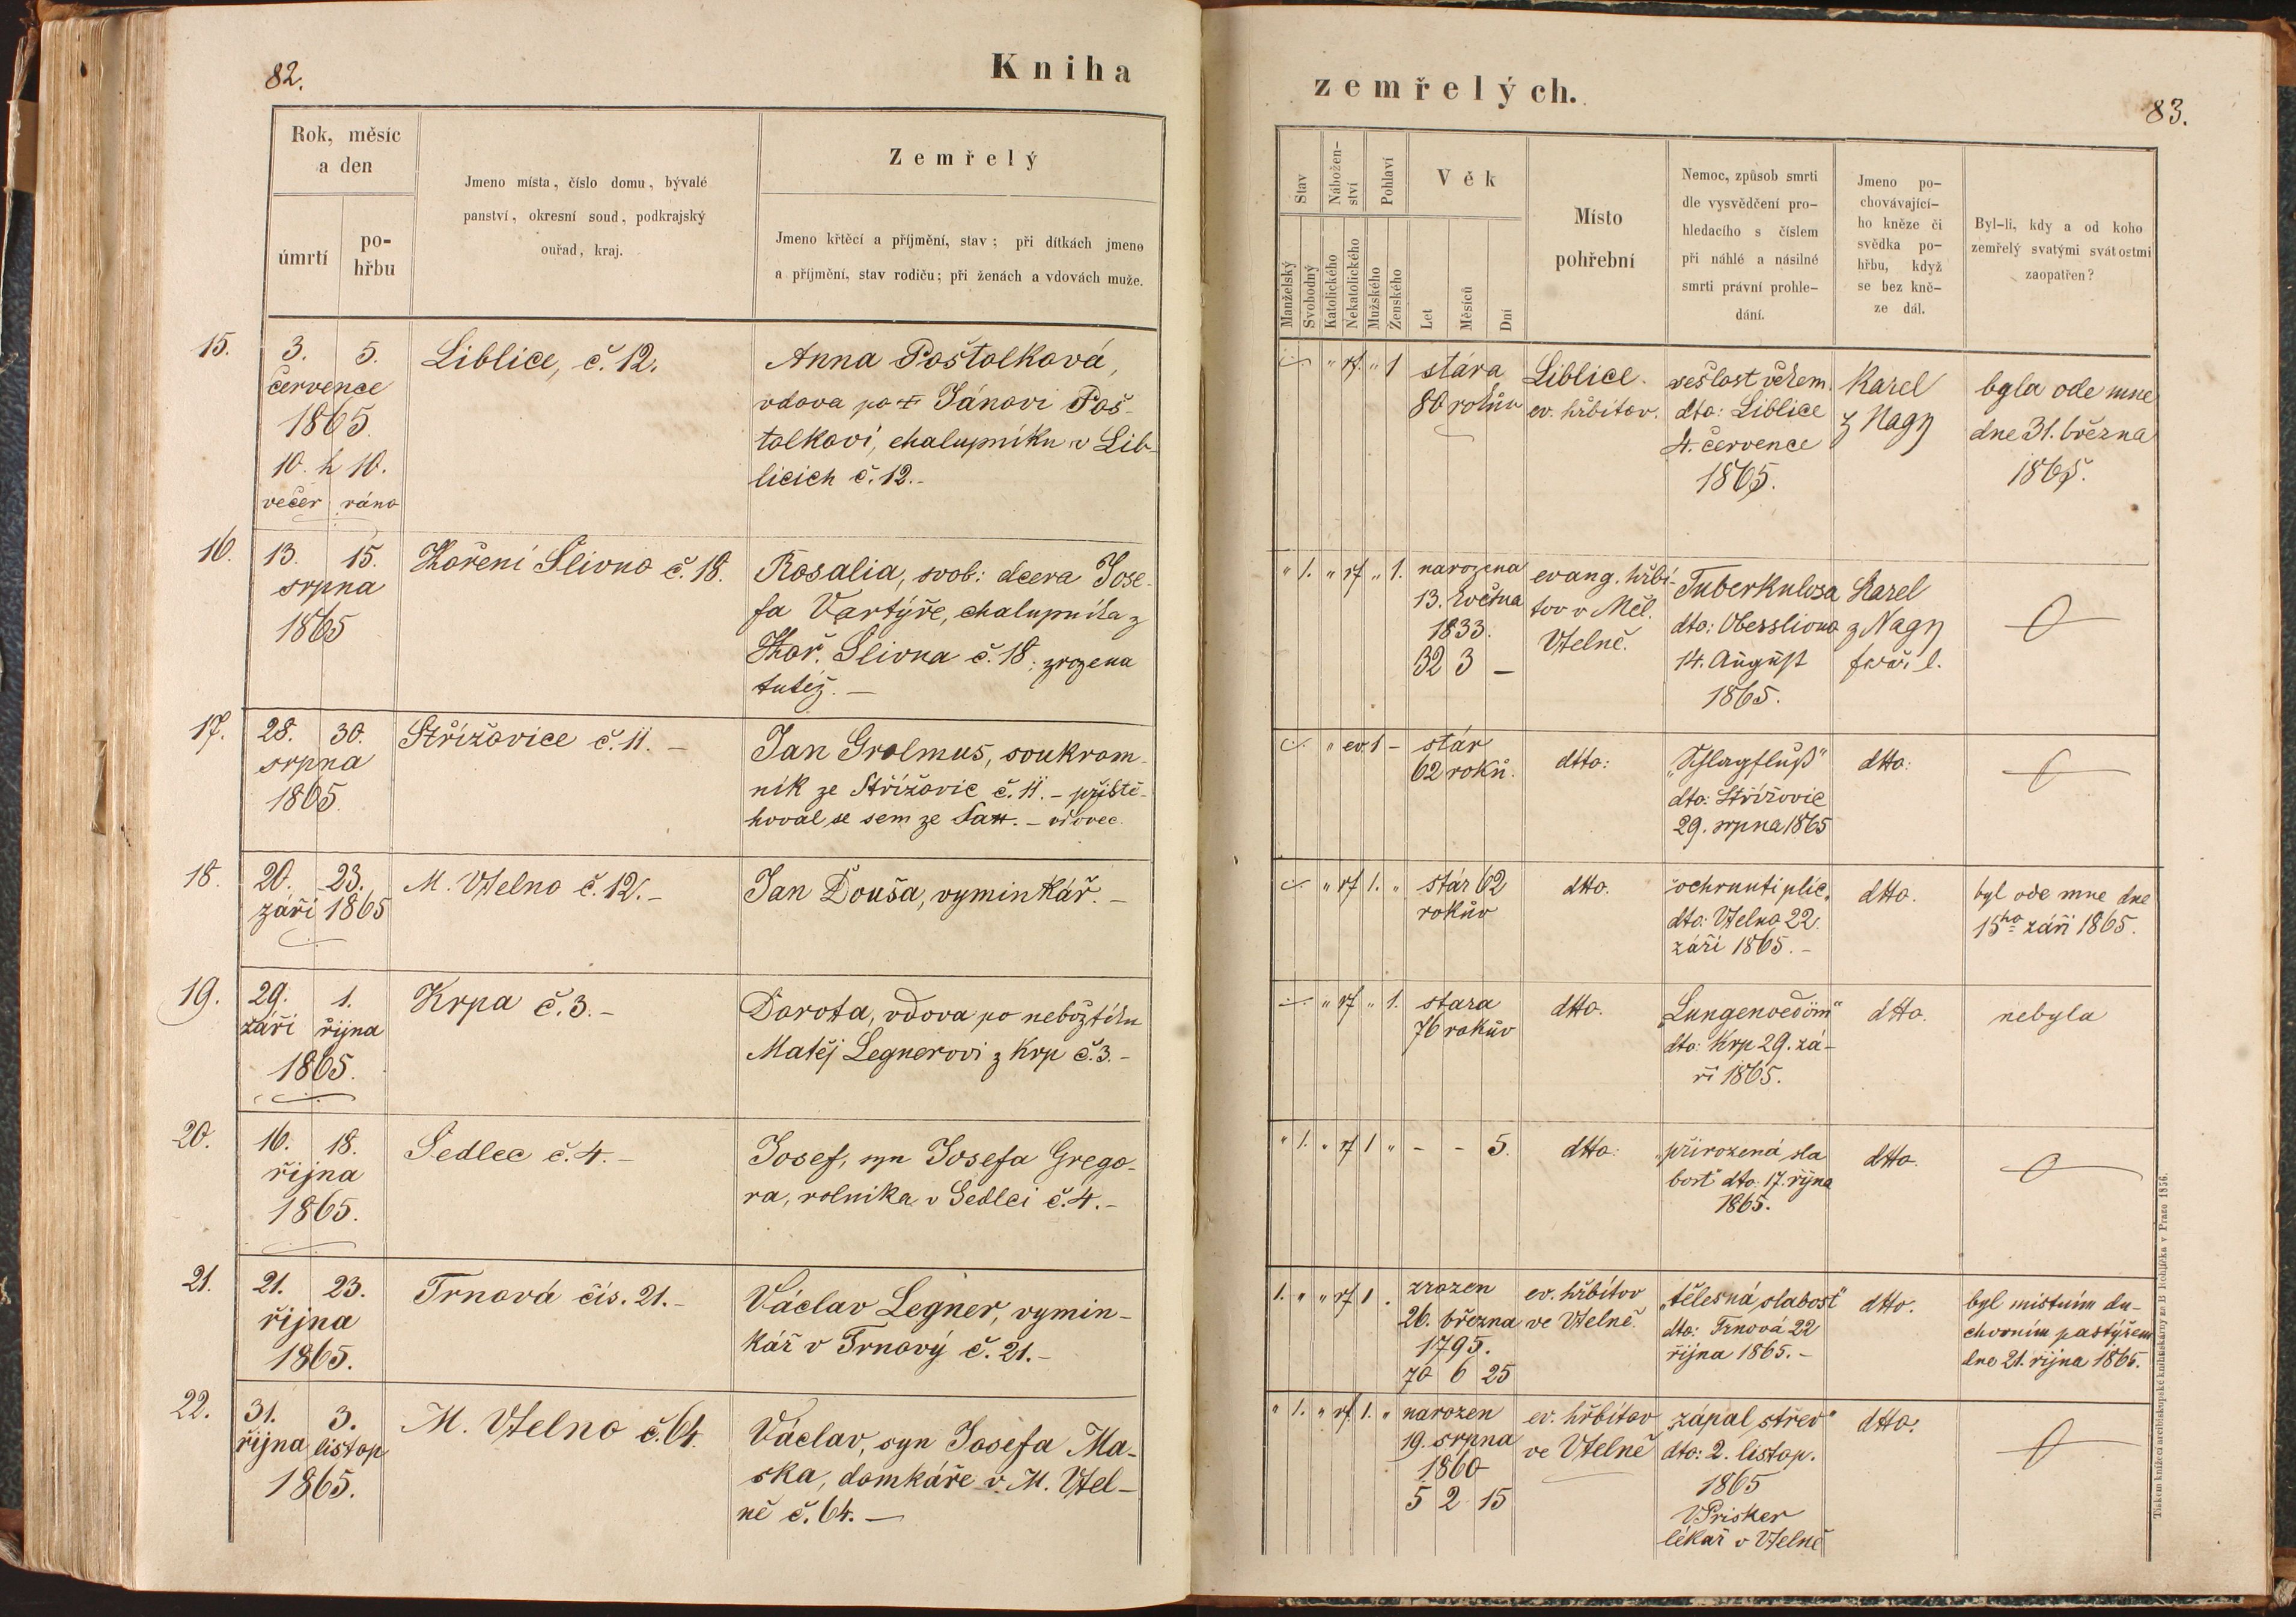 82.
Kniha
Rok, měsíc
a den
úmrtí
po-
hřbu
Jmeno místa, číslo domu, bývalé
panství, okresní soud, podkrajský
ouřad, kraj.
Zemřelý
Jmeno křtěcí a příjmění, stav; při dítkách jmeno
a příjmění, stav rodiču; při ženách a vdovách muže.
15.
3. 5.
července
1865.
10. h 10.
večer ráno
Liblice, č. 12.
Anna Poštolková,
vdova po † Jánovi Poš-
tolkovi, chalupníku v Lib-
licích č. 12.-
16.
13. 15.
srpna
1865
Slivno č. 18.
Rosalia, svob: dcera Jose-
fa Vartýře, chalupníka z
Slivna č. 18; zrozena
tutéž. —
17.
28. 30.
srpna
1865.
Střížovice č. 11. -
Jan Grolmus, soukrom-
ník ze Střížovic č. 11. - přistě-
hoval se sem ze - vdovec.
18.
20. 23.
září 1865
M. Vtelno č. 12. -
Jan Douša, vyminkář. -
19.
29. 1.
září října
1865.
Krpa č. 3. -
Dorota, vdova po nebožtíku
Matěj Legnerovi z Krp č. 3. -
20.
16. 18.
října
1865.
Sedlec č. 4. -
Josef, syn Josefa Grego-
ra, rolníka v Sedlci č. 4. -
21.
21. 23.
října
1865.
Trnová čís. 21. -
Václav Legner, vymin-
kář v Trnový č. 21. -
22.
31. 3.
října listop
1865.
M. Vtelno č. 64.
Václav, syn Josefa Ma-
ska, domkáře v M. Vtel-
ně č. 64. —
zemřelých.
83.
Stav
Nábožen-
ství
Pohlaví
Věk
Manželský
Svobodný
Katolického
Nekatolického
Mužského
Ženského
Let
Měsíců
Dní
Místo
pohřební
Nemoc, způsob smrti
dle vysvědčení pro-
hledacího s číslem
při náhlé a násilné
smrti právní prohle-
dání.
Jmeno po-
chovávající-
ho kněze či
svědka po-
hřbu, když
se bez kně-
ze dál.
Byl-li, kdy a od koho
zemřelý svatými svátostmi
zaopatřen?
" rf. " 1
stára
80 rokův
Liblice.
ev. hřbitov.
sešlost věkem.
dto: Liblice
4. července
1865.
Karel
z Nagy
byla ode mne
dne 31. března
1865.
" 1. " rf " 1.
narozena
13. května
1833.
32 3 —
evang. hřbi-
tov v Měl.
Vtelně.
Tuberkulosa
dto: Obersliwno
14. August
1865.
Karel
z Nagy
farář l.
" ev. 1 -
stár
62 roků.
dtto:
„Schlagfluß"
dto: Střížovic
29. srpna 1865
dtto:
" rf 1. "
stár 62
rokův
dtto.
ochrnutí plic"
dto: Vtelno 22.
září 1865. -
dtto.
byl ode mne dne
15ho září 1865.
" rf " 1.
stara
76 rokův
dtto.
„Lungenoedöm"
dto: Krp 29. zá-
ří 1865.
dtto.
nebyla
" 1. " rf 1 " - - 5.
dtto:
„přirozená sla
bost" dto: 17. října
1865.
dtto.
1. " " rf 1 .
zrozen
26. března
1795.
70 6 25
ev. hřbitov
ve Vtelně.
„tělesná slabost"
dto: Trnová 22
října 1865. -
dtto.
byl místním du-
chovním pastýřem
dne 21. října 1865.
" 1. " rf 1. "
narozen
19. srpna
1860
5 2 15
ev. hřbitov
ve Vtelně
„zápal střev"
dto: 2. listop.
1865
V Prisker
lékař v Vtelně
dtto.
Tiskem knížecí arcibiskupské knihtiskárny za B Rohlíčka v Praze 1856.